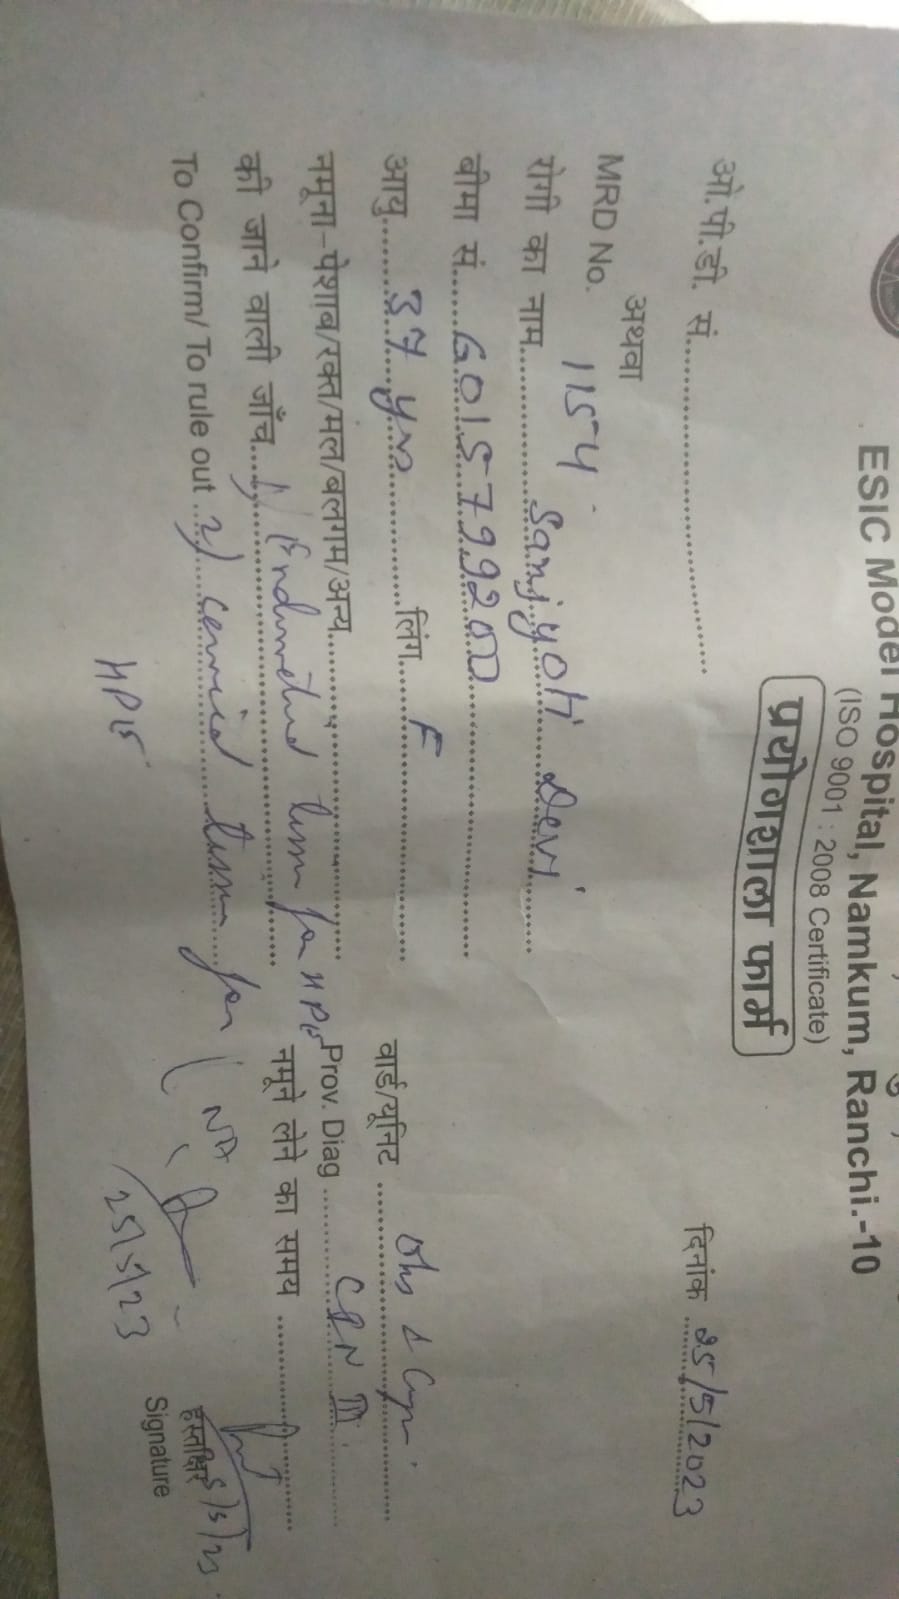 ESIC Model Hospital, Namkum, Ranchi.-10
(ISO 9001 : 2008 Certificate)
प्रयोगशाला फार्म
ओ.पी.डी. सं.......... दिनांक 25/5/2023
अथवा
MRD No. 1154
रोगी का नाम.......... Sanjyoti Devi
बीमा सं...... 6015799200
आयु...... 37 yrs लिंग..... F वार्ड/यूनिट ..........
नमूना-पेशाब/रक्त/मल/बलगम/अन्य.......... Prov. Diag .......... CIN III
की जाने वाली जाँच..... 1) Endometrial tissue for HPE नमूने लेने का समय ..........
To Confirm/ To rule out ..... 2) cervical tissue for
HPE
25/5/23
हस्ताक्षर
Signature